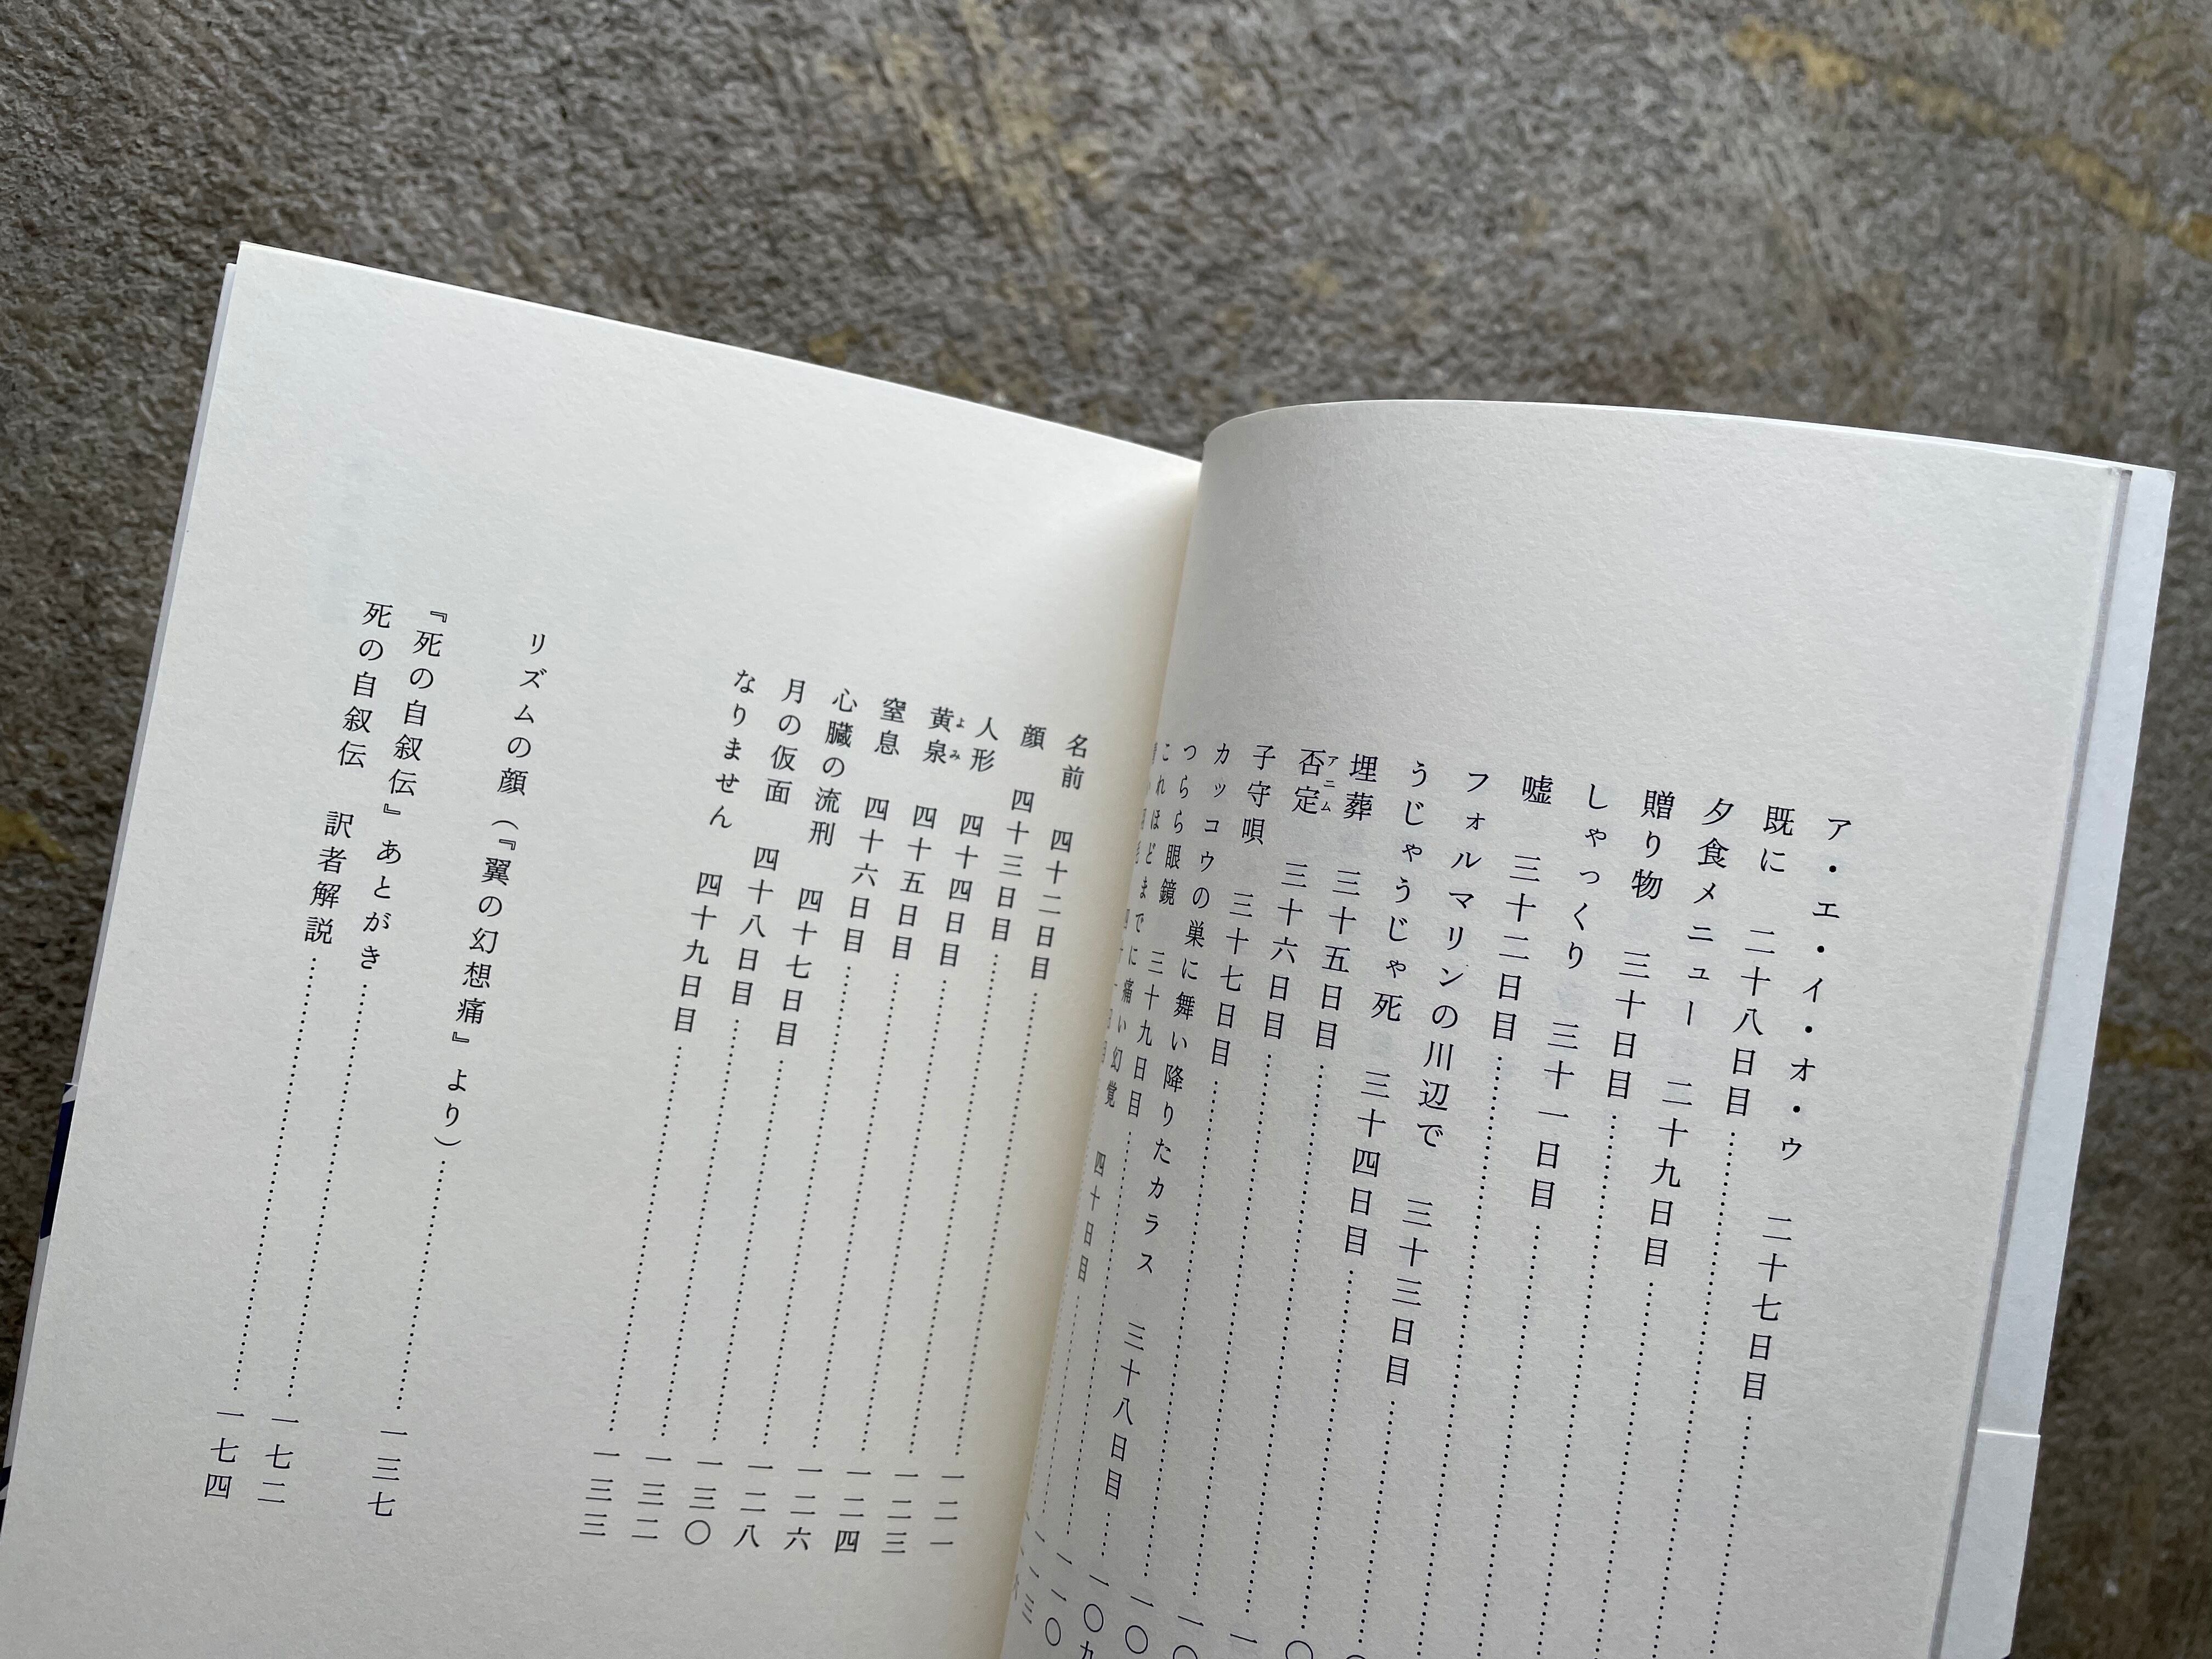 ア・エ・イ・オ・ウ　二十七日目
既に　二十八日目
夕食メニュー　二十九日目
贈り物　三十日目
しゃっくり　三十一日目
嘘　三十二日目
フォルマリンの川辺で　三十三日目
うじゃうじゃ死　三十四日目
埋葬　三十五日目
否定　三十六日目
アニム
子守唄　三十七日目
カッコウの巣に舞い降りたカラス　三十八日目
つらら眼鏡　三十九日目……一〇九
これほどまでに痛い幻覚　四十日目……一一〇
名前　四十二日目……一二一
顔　四十三日目……一二三
人形　四十四日目……一二四
黄泉　四十五日目……一二六
よみ
窒息　四十六日目……一二八
心臓の流刑　四十七日目……一三〇
月の仮面　四十八日目……一三二
なりません　四十九日目……一三三
リズムの顔（『翼の幻想痛』より）……一三七
『死の自叙伝』あとがき……一七二
死の自叙伝　訳者解説……一七四